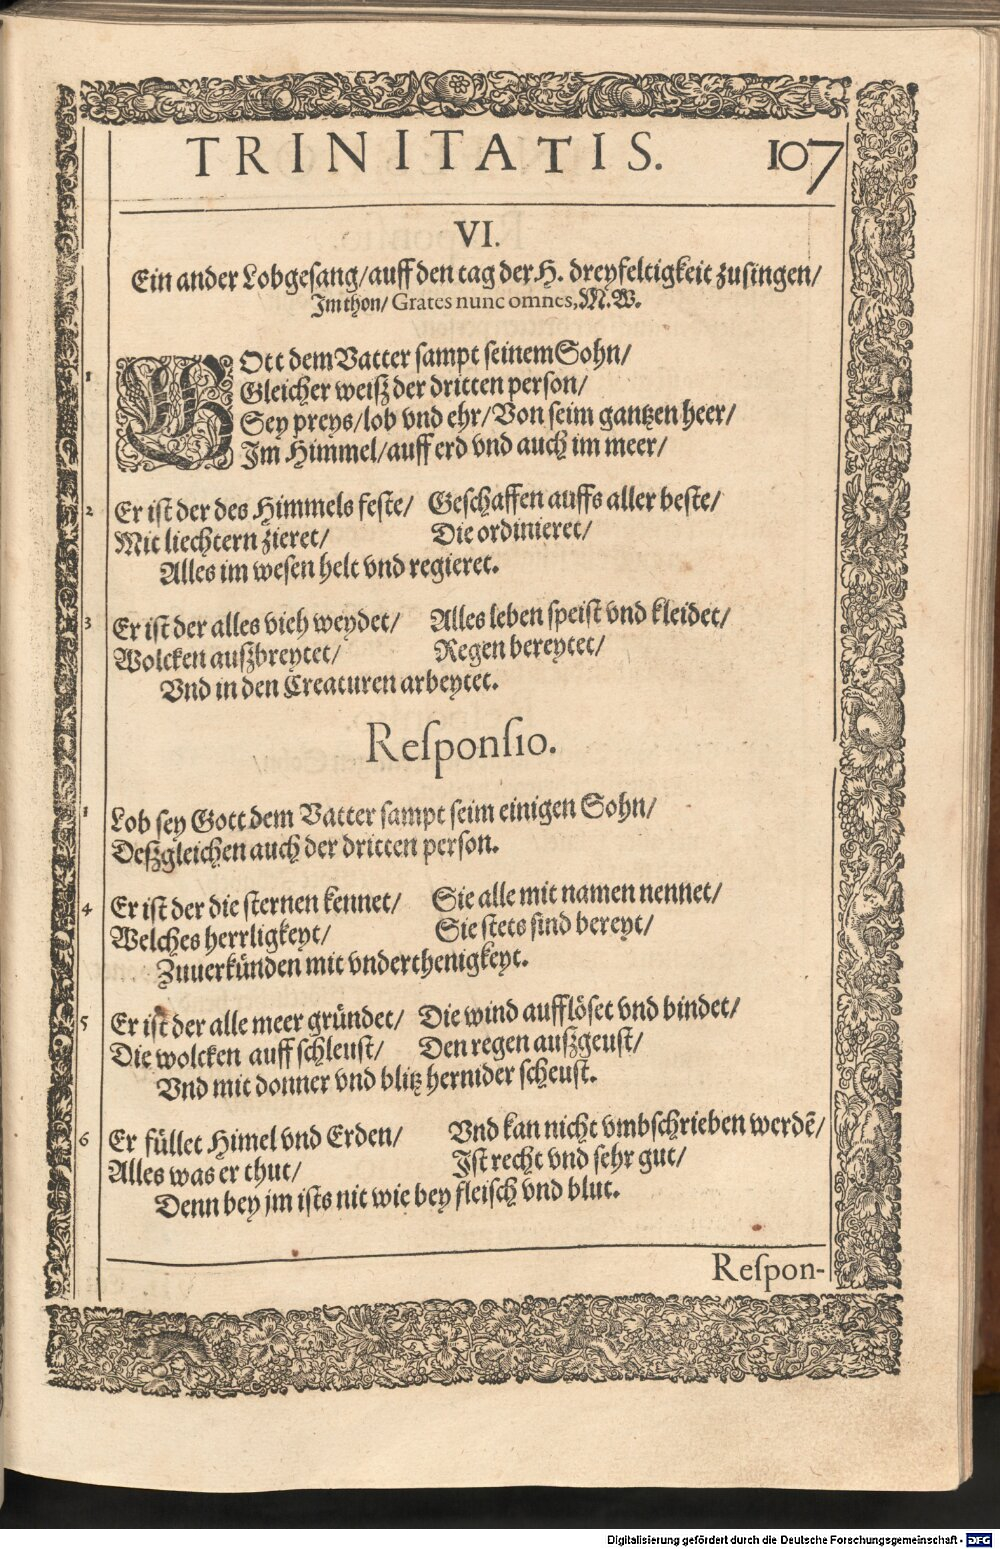 TRINITATIS. 107
VI.
Ein ander Lobgesang/auff den tag der H. dreyfeltigkeit zusingen/
Im thon/ Grates nunc omnes, M. W.
1 GOtt dem Vatter sampt seinem Sohn/
Gleicher weiß der dritten person/
Sey preys/lob vnd ehr/Von seim gantzen heer/
Im Himmel/auff erd vnd auch im meer/
2 Er ist der des Himmels feste/ Geschaffen auffs aller beste/
Mit liechtern zieret/ Die ordinieret/
Alles im wesen helt vnd regieret.
3 Er ist der alles vich weydet/ Alles leben speist vnd kleidet/
Wolcken außbreytet/ Regen bereytet/
Vnd in den Creaturen arbeytet.
Responsio.
1 Lob sey Gott dem Vatter sampt seim einigen Sohn/
Deßgleichen auch der dritten person.
4 Er ist der die sternen kennet/ Sie alle mit namen nennet/
Welches herrligkeyt/ Sie stets sind bereyt/
Zuuerkünden mit vnderthenigkeyt.
5 Er ist der alle meer gründet/ Die wind aufflöset vnd bindet/
Die wolcken auff schleust/ Den regen außgeust/
Vnd mit donner vnd blitz hernider scheust.
6 Er füllet Himel vnd Erden/ Vnd kan nicht vmbschrieben werdẽ/
Alles was er thut/ Ist recht vnd sehr gut/
Denn bey jm ists nit wie bey fleisch vnd blut.
Respon-
Digitalisierung gefördert durch die Deutsche Forschungsgemeinschaft - DFG